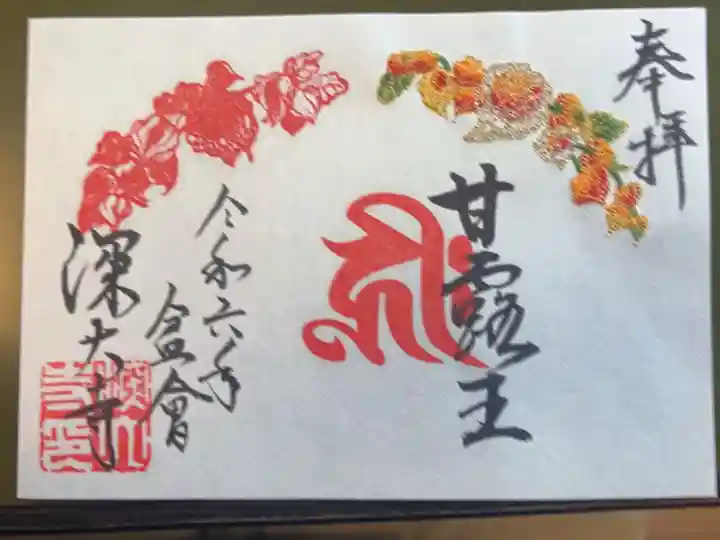 奉拝
甘露王
令和六年
盆會
深大寺